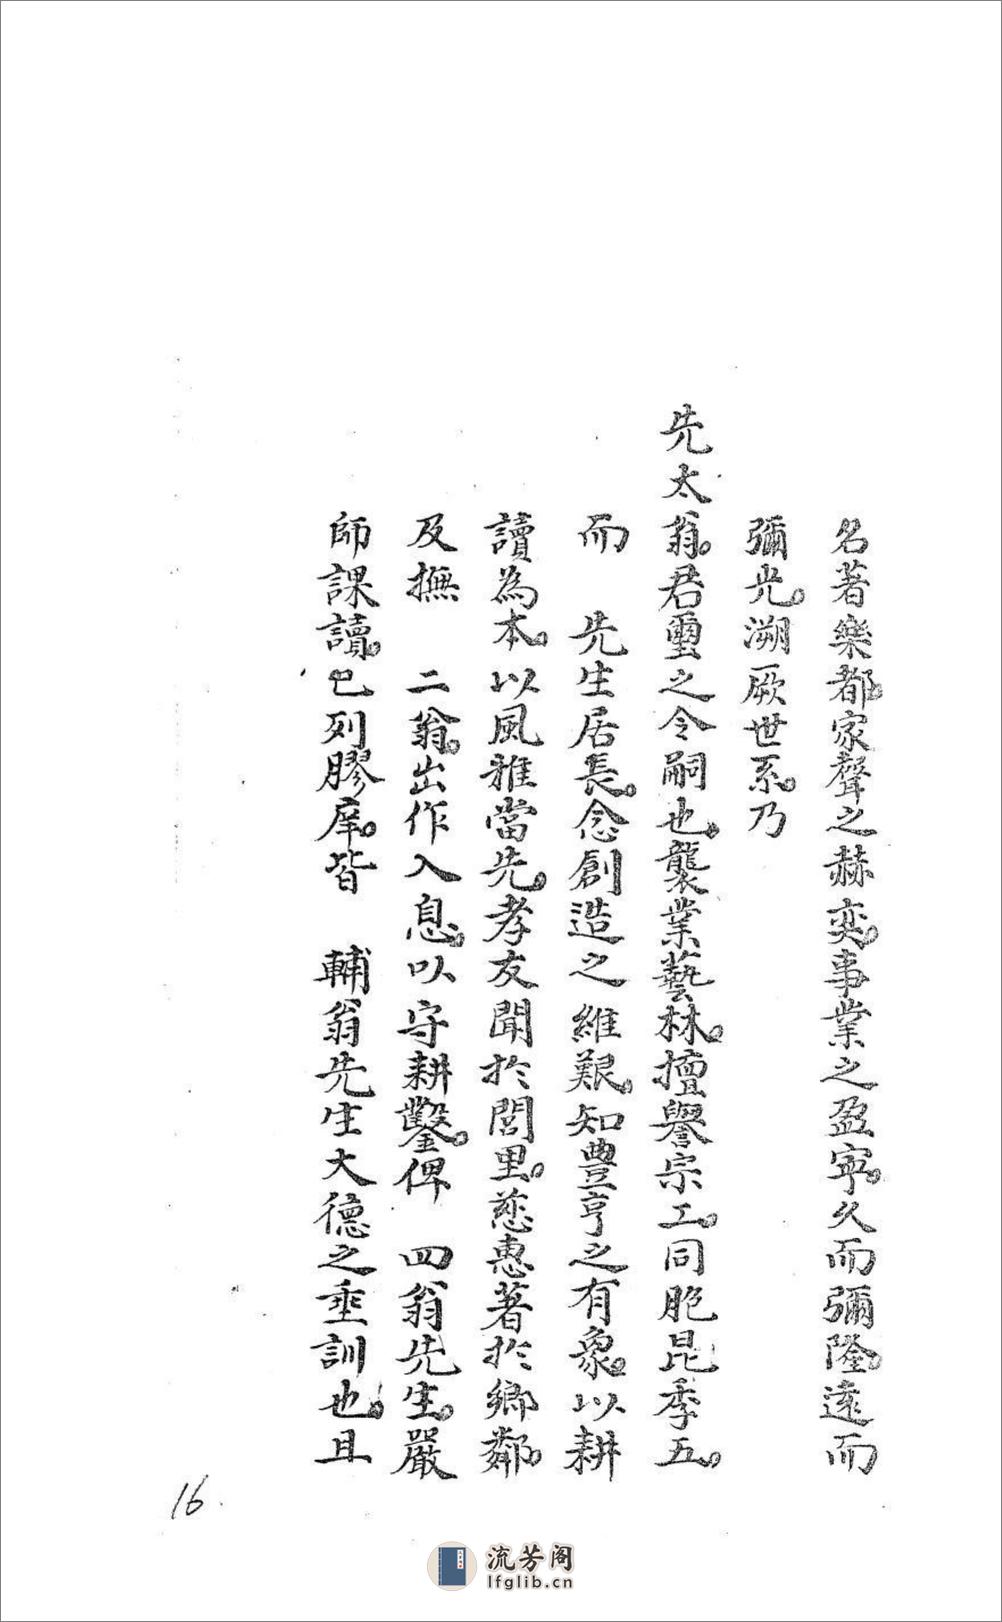 名著樂都。家聲之赫奕。事業之盈寧。久而彌隆。遠而
彌光。溯厥世系。乃
先太翁。君璽之令嗣也。襲業藝林。擅譽宗工。同胞昆季五。
而 先生居長。念創造之維艱。知豐亨之有象。以耕
讀為本。以風雅當先。孝友聞於閭里。慈惠著於鄉鄰。
及撫 二翁。出作入息。以守耕鑿。俾 四翁先生。嚴
師課讀。已列膠庠。皆 輔翁先生大德之垂訓也。且
16
流芳阁
lfglib.cn